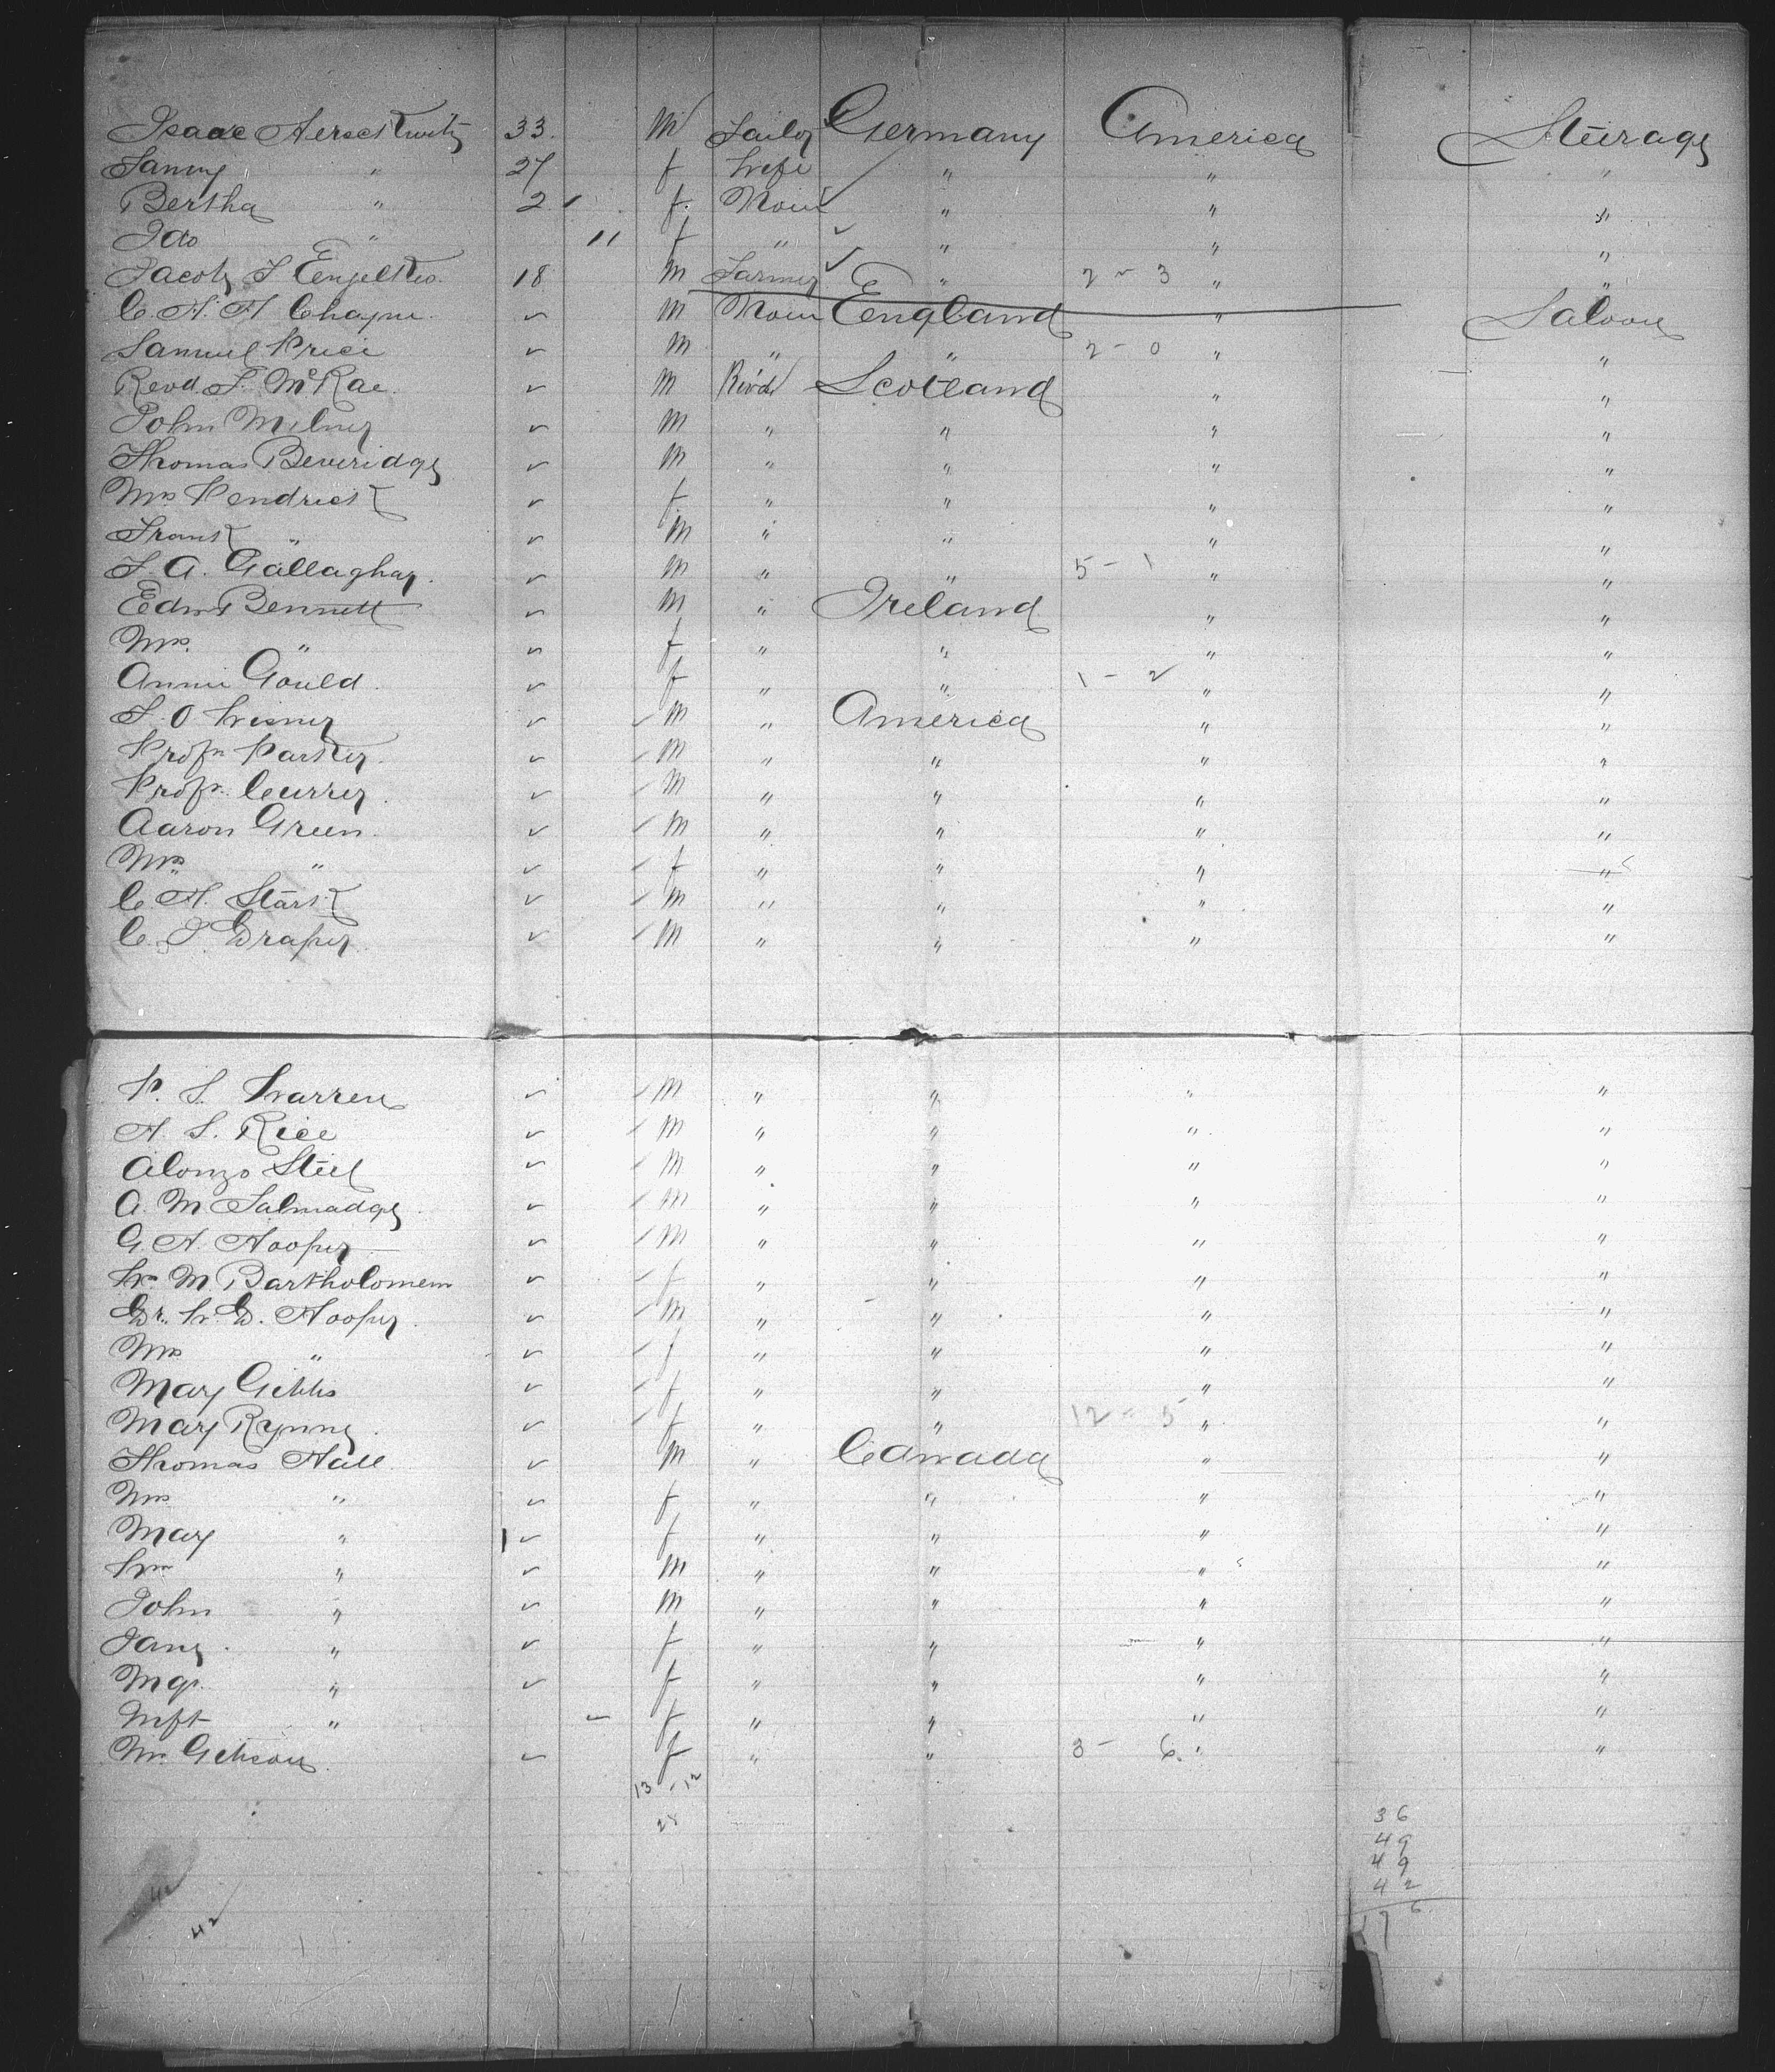 Isaac Herschkwitz 33 M Tailor Germany America Steerage
Fanny " 27 f Wife " " "
Bertha " 2 f None " " "
Ida " 11 f " " " "
Jacob 18 M Farmer " 2 - 3 " "
C. H. H. M None England " Saloon
Samuel Price ✓ M " " 2 - 0 " "
Revd. F. McRae ✓ M Revd Scotland " "
John Milner ✓ M " " " "
Thomas Beveridge ✓ M " " " "
Mrs Pendrick ✓ f " " " "
Frank " ✓ M " " " "
F. A. Gallagher ✓ M " " 5 - 1 " "
Edw Bennett ✓ M " Ireland " "
Mrs. " ✓ f " " " "
Annie Gould ✓ f " " 1 - 2 " "
F. O. Wisner ✓ M " America " "
Profr. Parker ✓ M " " " "
Profr. Currer ✓ M " " " "
Aaron Green ✓ M " " " "
Mrs. " ✓ f " " " "
C. H. Stark ✓ M " " " "
C. I. Draper ✓ M " " " "
P. S. Warren ✓ M " " " "
H. S. Rice ✓ M " " " "
Alonzo Steel ✓ M " " " "
A. M. Talmadge ✓ M " " " "
G. H. Hooper ✓ M " " " "
Wm M. Bartholomew ✓ f " " " "
Dr. W. D. Hooper ✓ M " " " "
Mrs " ✓ f " " " "
Mary Gibbs ✓ f " " " "
Mary Rynne ✓ f " " 12 - 5 " "
Thomas Hall ✓ M " Canada " "
Mrs " ✓ f " " " "
Mary " ✓ f " " " "
Wm " ✓ M " " " "
John " ✓ M " " " "
Jane " ✓ f " " " "
Mgt. " ✓ f " " " "
Inft " f " " " "
Gibson ✓ f " " 3 - 6. " "
13 - 12
36
49
49
42
176
42
42